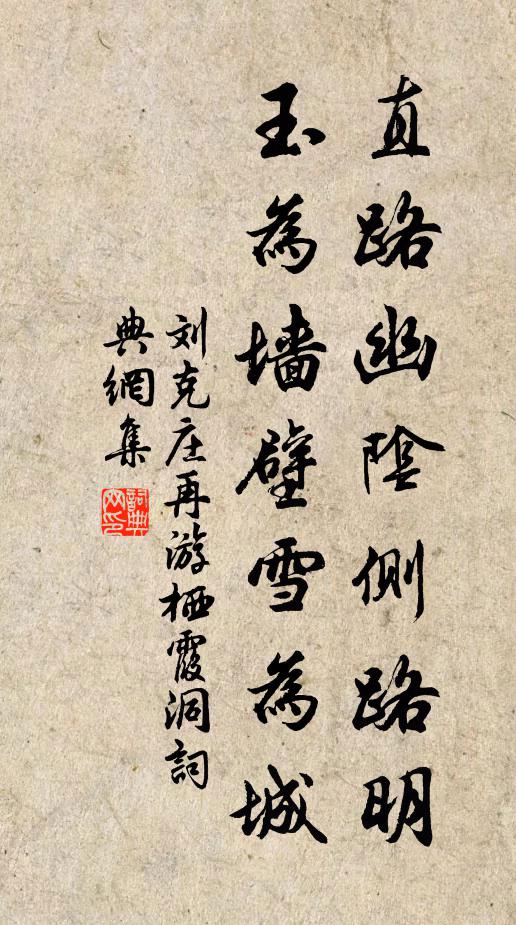 直路幽陰側路明
玉為墻壁雪為城
刘克庄再游栖霞洞詞
典網集
詞典
网印